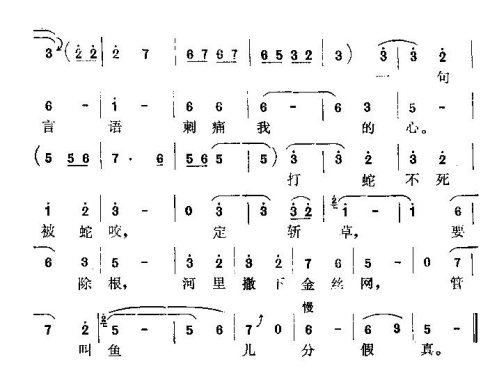 3 (2 2 | 2 7 | 6 7 6 7 | 6 5 3 2 | 3) 3 | 3 2 |
一 句
6 - | i - | 6 6 | 6 - | 6 3 | 5 - |
言 语 刺 痛 我 的 心。
(5 5 6 | 7 · 6 | 5 6 5 | 5) 3 | 3 2 | 3 5 |
打 蛇 不 死
i 2 | 3 - | 0 3 | 3 3 2 | i - | i 6 |
被 蛇 咬, 定 斩 草, 要
6 3 | 5 - | 3 2 | 3 2 | 7 6 | 5 - | 0 7 |
除 根, 河 里 撒 下 金 丝 网, 管
慢
7 2 | 5 - | 5 6 | 7 0 | 6 - | 6 3 | 5 - ‖
叫 鱼 儿 分 假 真。